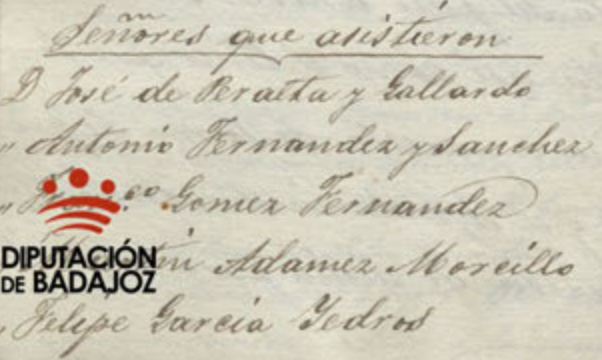 Señores que asistieron
D José de Peralta y Gallardo
" Antonio Fernandez y Sanchez
" Gomez Fernandez
DIPUTACIÓN
DE BADAJOZ
Adamez Morcillo
" Felipe Garcia